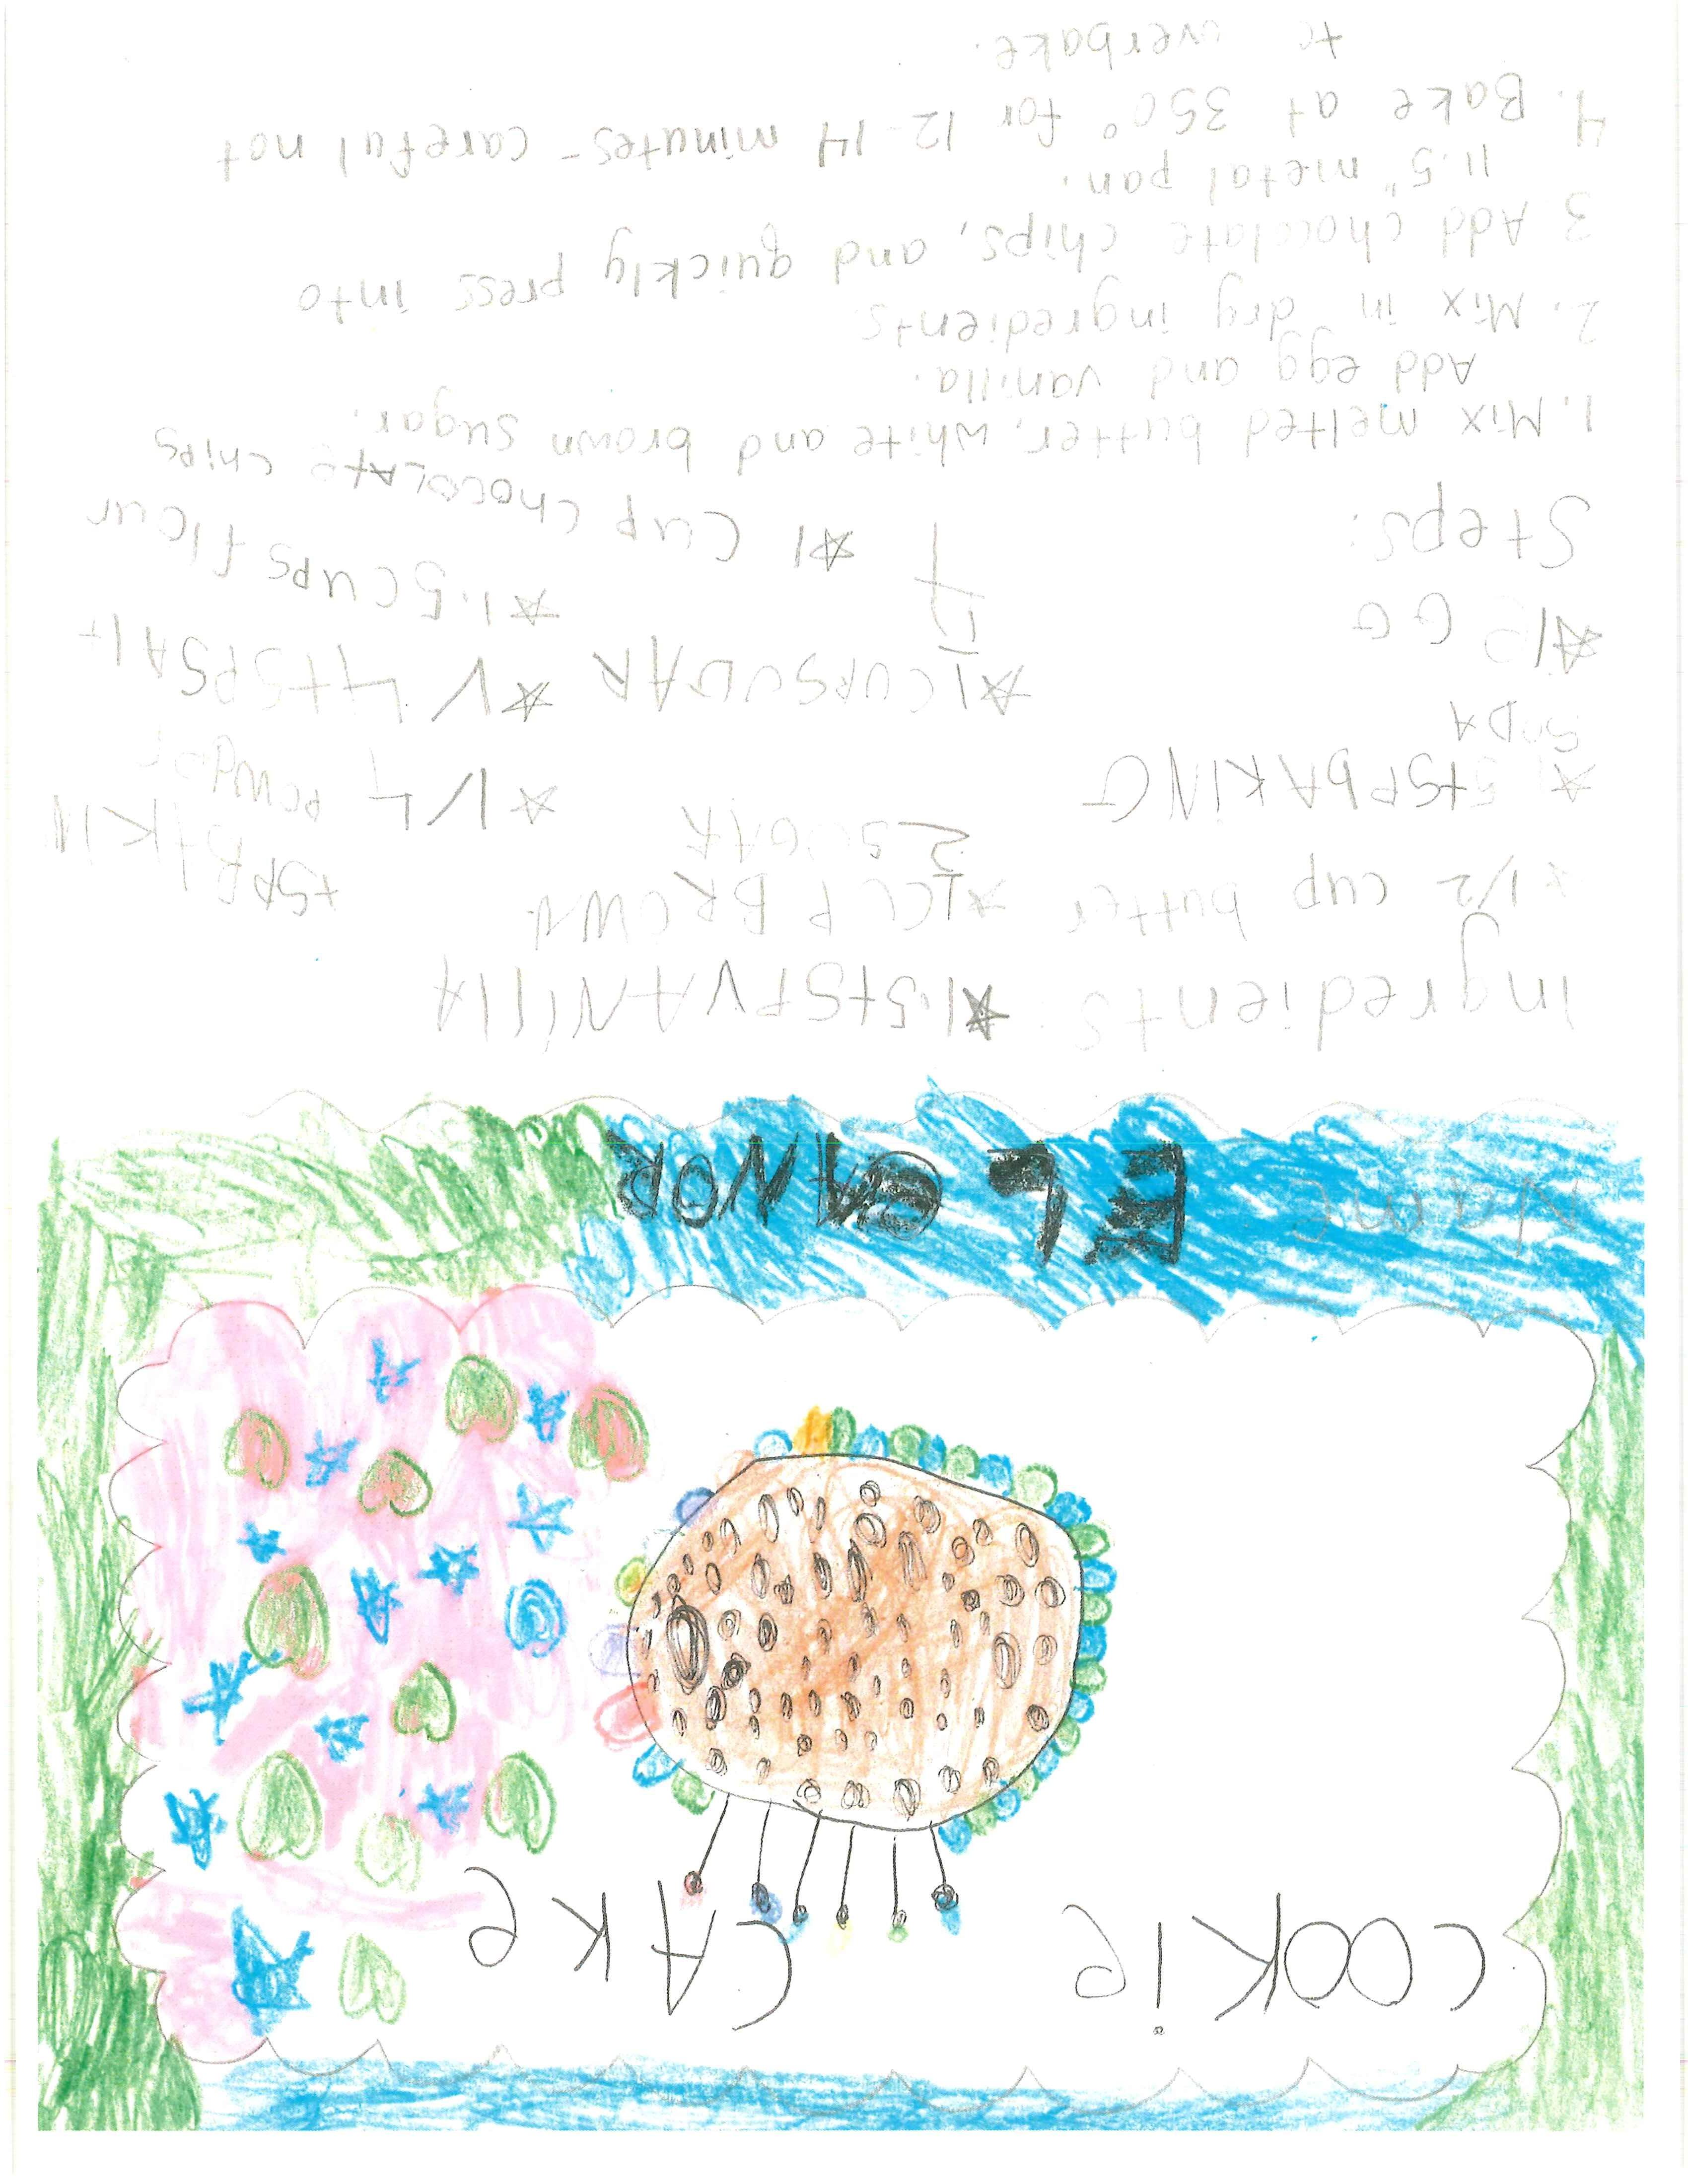 COOKie CAKe
Name: ELeANOR
Ingredients: ★1.5tSPVANIllA
★1/2 cup butter ★1/2 CUP BROWN SUGAR
★1/4 tSPBAKIN powder
★.5tSPbAKiNG SODA
★1CUPSUGAR ★1/4tSPSAlt
★1eGG
★1.5CUPS flour
★1 Cup CHOCOLAte CHiPS
Steps:
1. Mix melted butter, white and brown sugar.
Add egg and vanilla.
2. Mix in dry ingredients.
3 Add chocolate chips, and quickly press into
11.5" metal pan.
4. Bake at 350° for 12-14 minutes - careful not
to overbake.